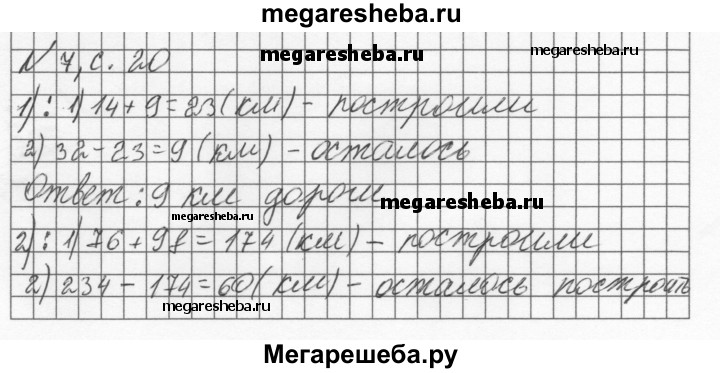 megaresheba.ru
N 7, с. 20
megaresheba.ru
megaresheba.ru
1): 1) 14 + 9 = 23 (км) - построили
2) 32 - 23 = 9 (км) - осталось
Ответ: 9 км дороги
megaresheba.ru
megaresheba.ru
2): 1) 76 + 98 = 174 (км) - построили
2) 234 - 174 = 60 (км) - осталось построить
megaresheba.ru
Мегарешеба.ру